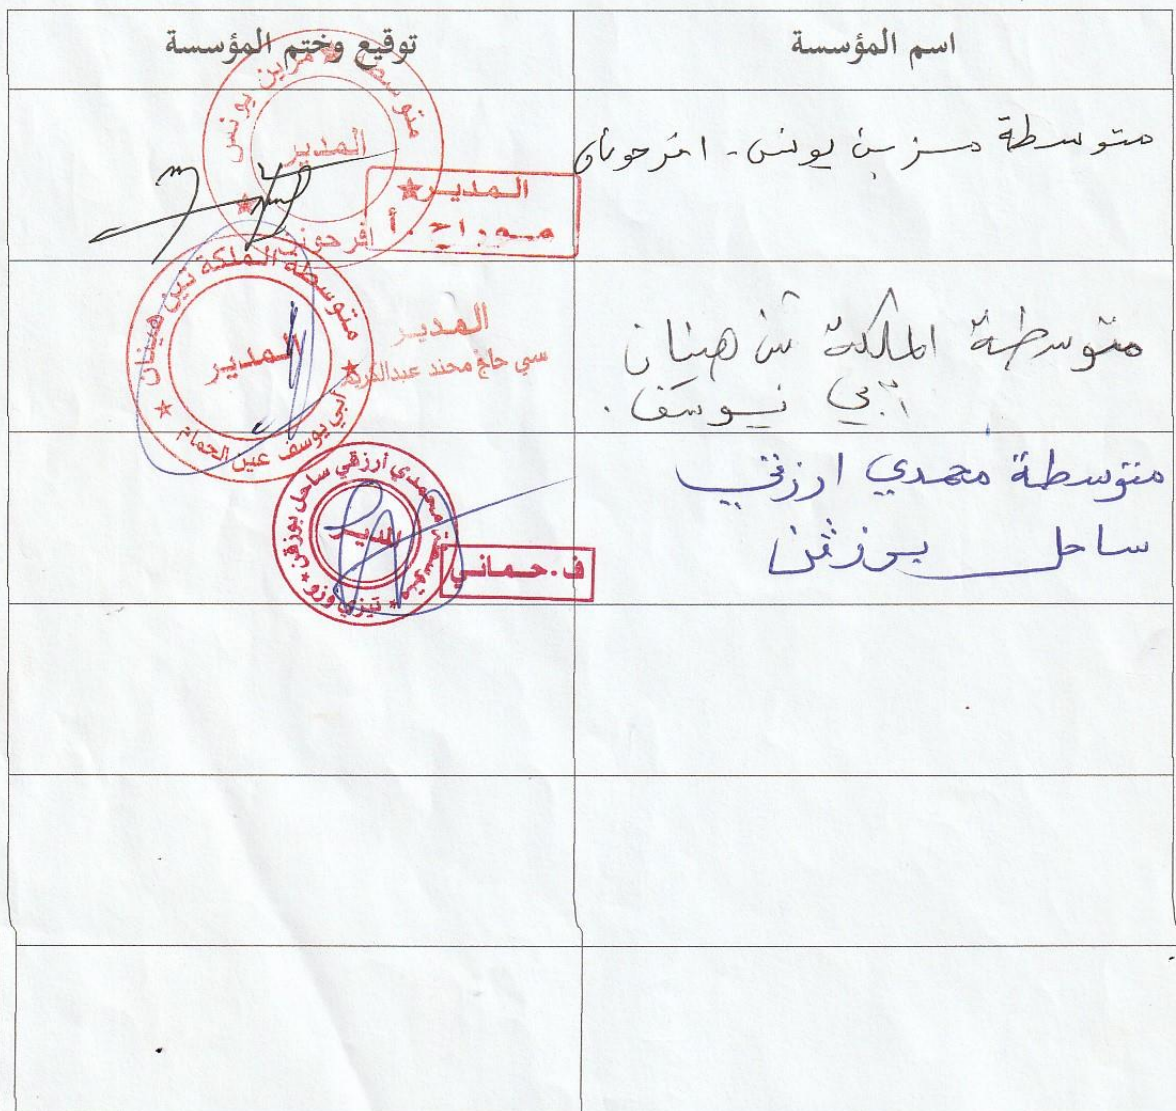 اسم المؤسسة
توقيع وختم المؤسسة
متوسطة مزين يونس - افرحونان
متوسطة مزين يونس
المدير
افرحونن
المدير
متوسطة الملكة تين هينان
أبي يوسف .
متوسطة الملكة تين هينان
المدير
أبي يوسف عين الحمام
المدير
سي حاج محند عبدالكريم
متوسطة محمدي ارزقي
ساحل بوزڨن
متوسطة محمدي أرزقي ساحل بوزقن
المدير
تيزي وزو
ف.حماني